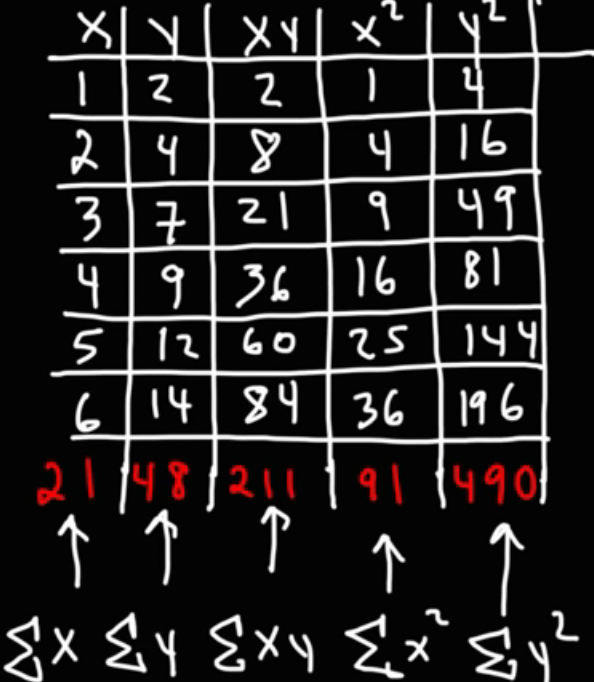 x y xy x² y²
1 2 2 1 4
2 4 8 4 16
3 7 21 9 49
4 9 36 16 81
5 12 60 25 144
6 14 84 36 196
21 48 211 91 490
Σx Σy Σxy Σx² Σy²